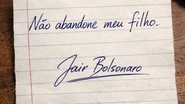 Não abandone meu filho.
Jair Bolsonaro